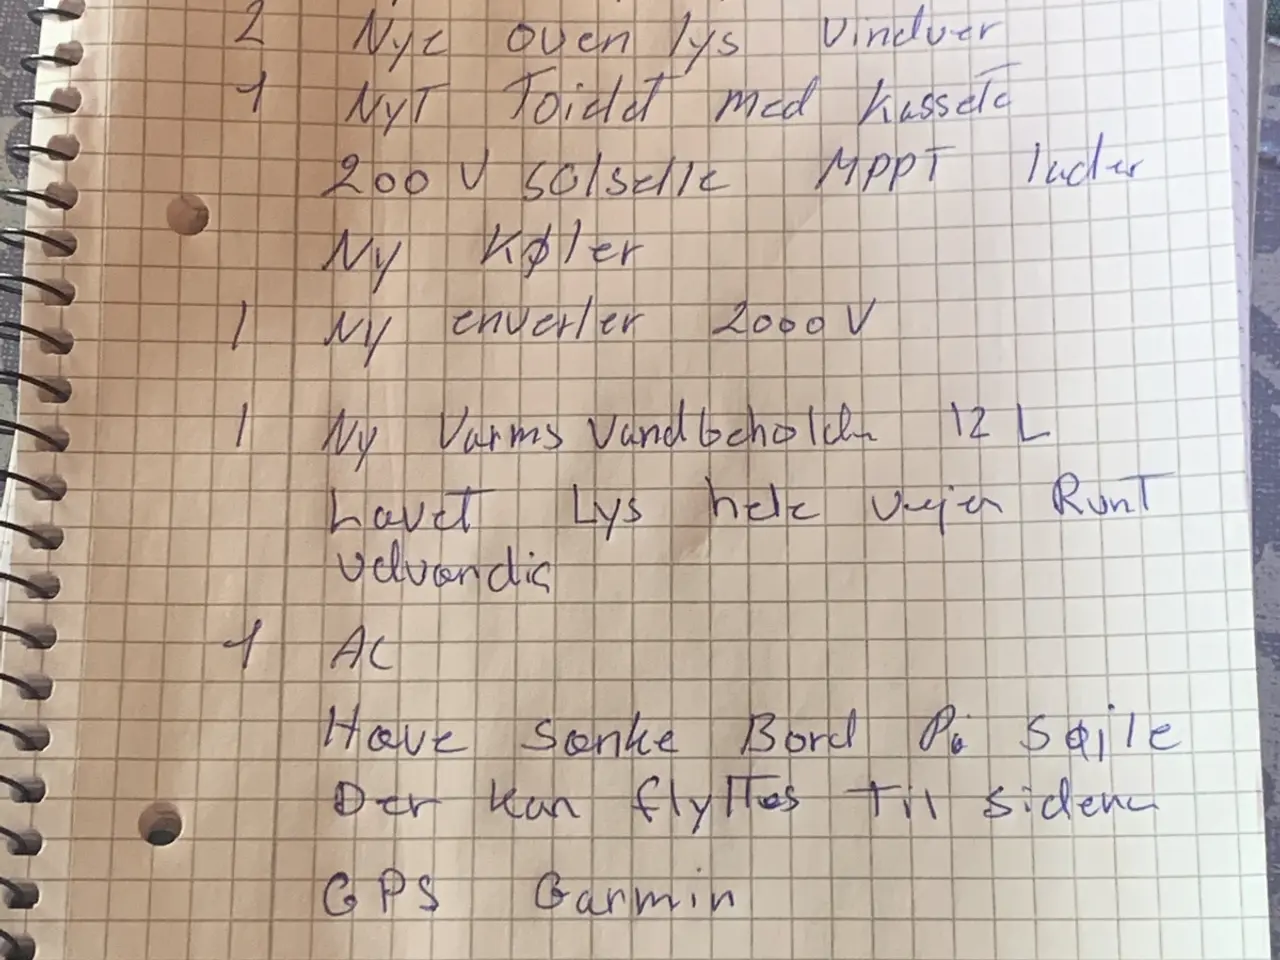 2 Nye oven lys vinduer
1 NyT Toidet med kassete
200 V solselle MPPT lader
Ny Køler
1 Ny enverter 2000 V
1 Ny Varms vandbeholder 12 L
Lavet Lys hele vejen RunT
udvendig
1 AC
Hæve Sænke Bord På Søjle
Der kan flyTTes Til sidern
GPS Garmin